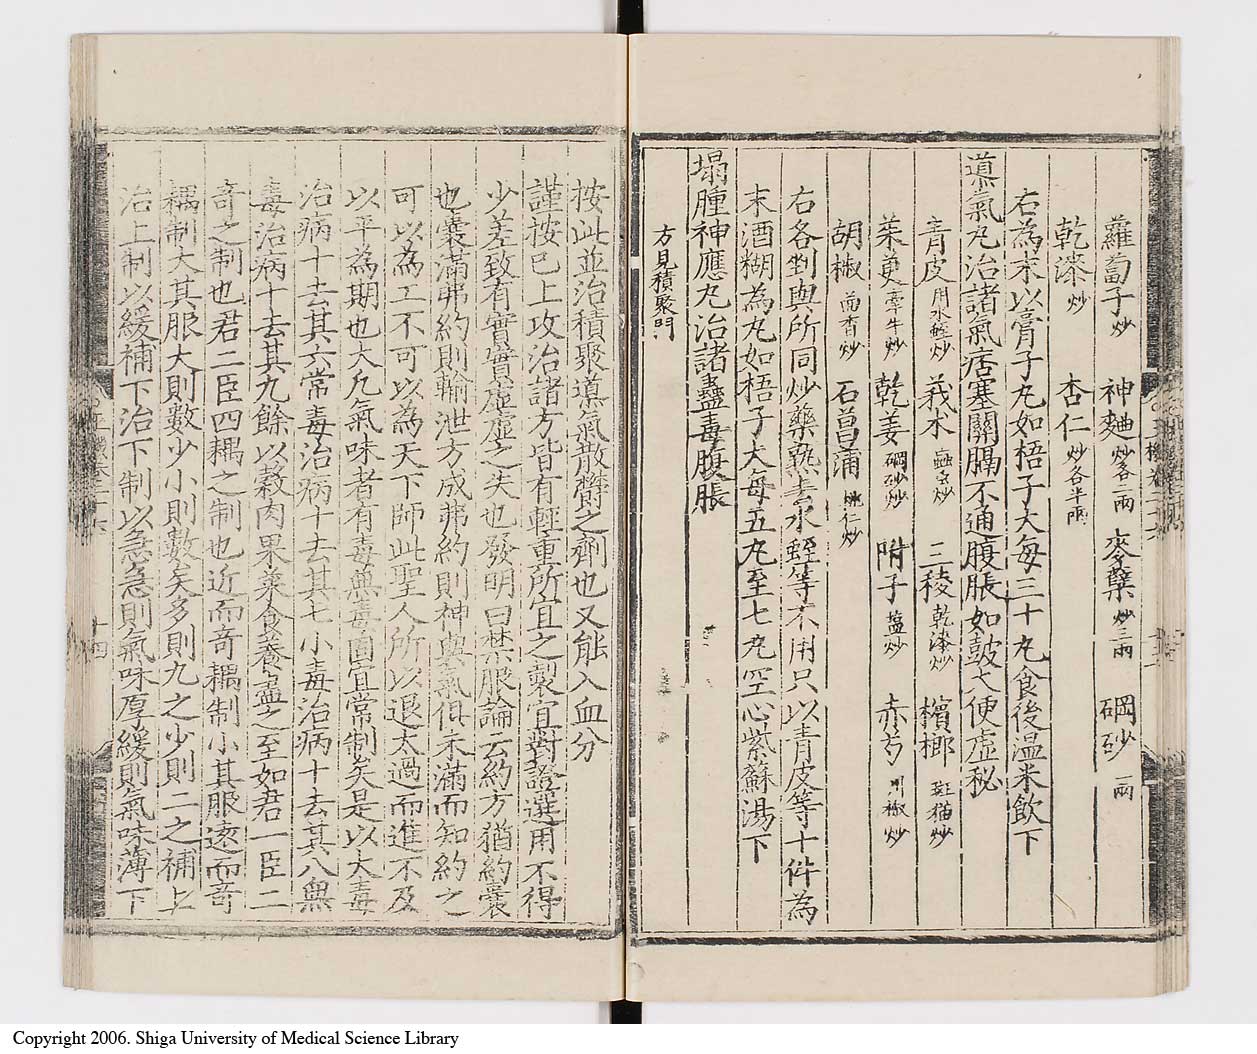 蘿蔔子炒 神麯炒各二兩 麥櫱炒三兩 硇砂一兩
乾漆炒 杏仁炒各半兩
右為末以膏子丸如梧子大每三十丸食後温米飲下
導氣丸治諸氣痞塞關膈不通腹脹如鼓大便虚秘
青皮用水蛭炒 莪朮䖟虫炒 三稜乾漆炒 檳榔斑猫炒
茱萸牽牛炒 乾姜硇砂炒 附子塩炒 赤芍川椒炒
胡椒茴香炒 石菖蒲桃仁炒
右各剉與所同炒藥熟去水蛭等不用只以青皮等十件為
末酒糊為丸如梧子大每五丸至七丸空心紫蘇湯下
塌腫神應丸治諸蠱毒腹脹
方見積聚門
按此並治積聚導氣散欝之劑也又能入血分
謹按已上攻治諸方皆有輕重所宜之製宜對證選用不得
少差致有實實虚虚之失也發明曰禁服論云約方猶約囊
也囊滿弗約則輸泄方成弗約則神與氣俱未滿而知約之
可以為工不可以為天下師此聖人所以退太過而進不及
以平為期也大凡氣味者有毒無毒固宜常制矣是以大毒
治病十去其六常毒治病十去其七小毒治病十去其八無
毒治病十去其九餘以穀肉果菜食養盡之至如君一臣二
竒之制也君二臣四耦之制也近而竒耦制小其服逺而竒
耦制大其服大則數少小則數矣多則九之少則二之補上
治上制以緩補下治下制以急急則氣味厚緩則氣味薄下
十四
Copyright 2006. Shiga University of Medical Science Library